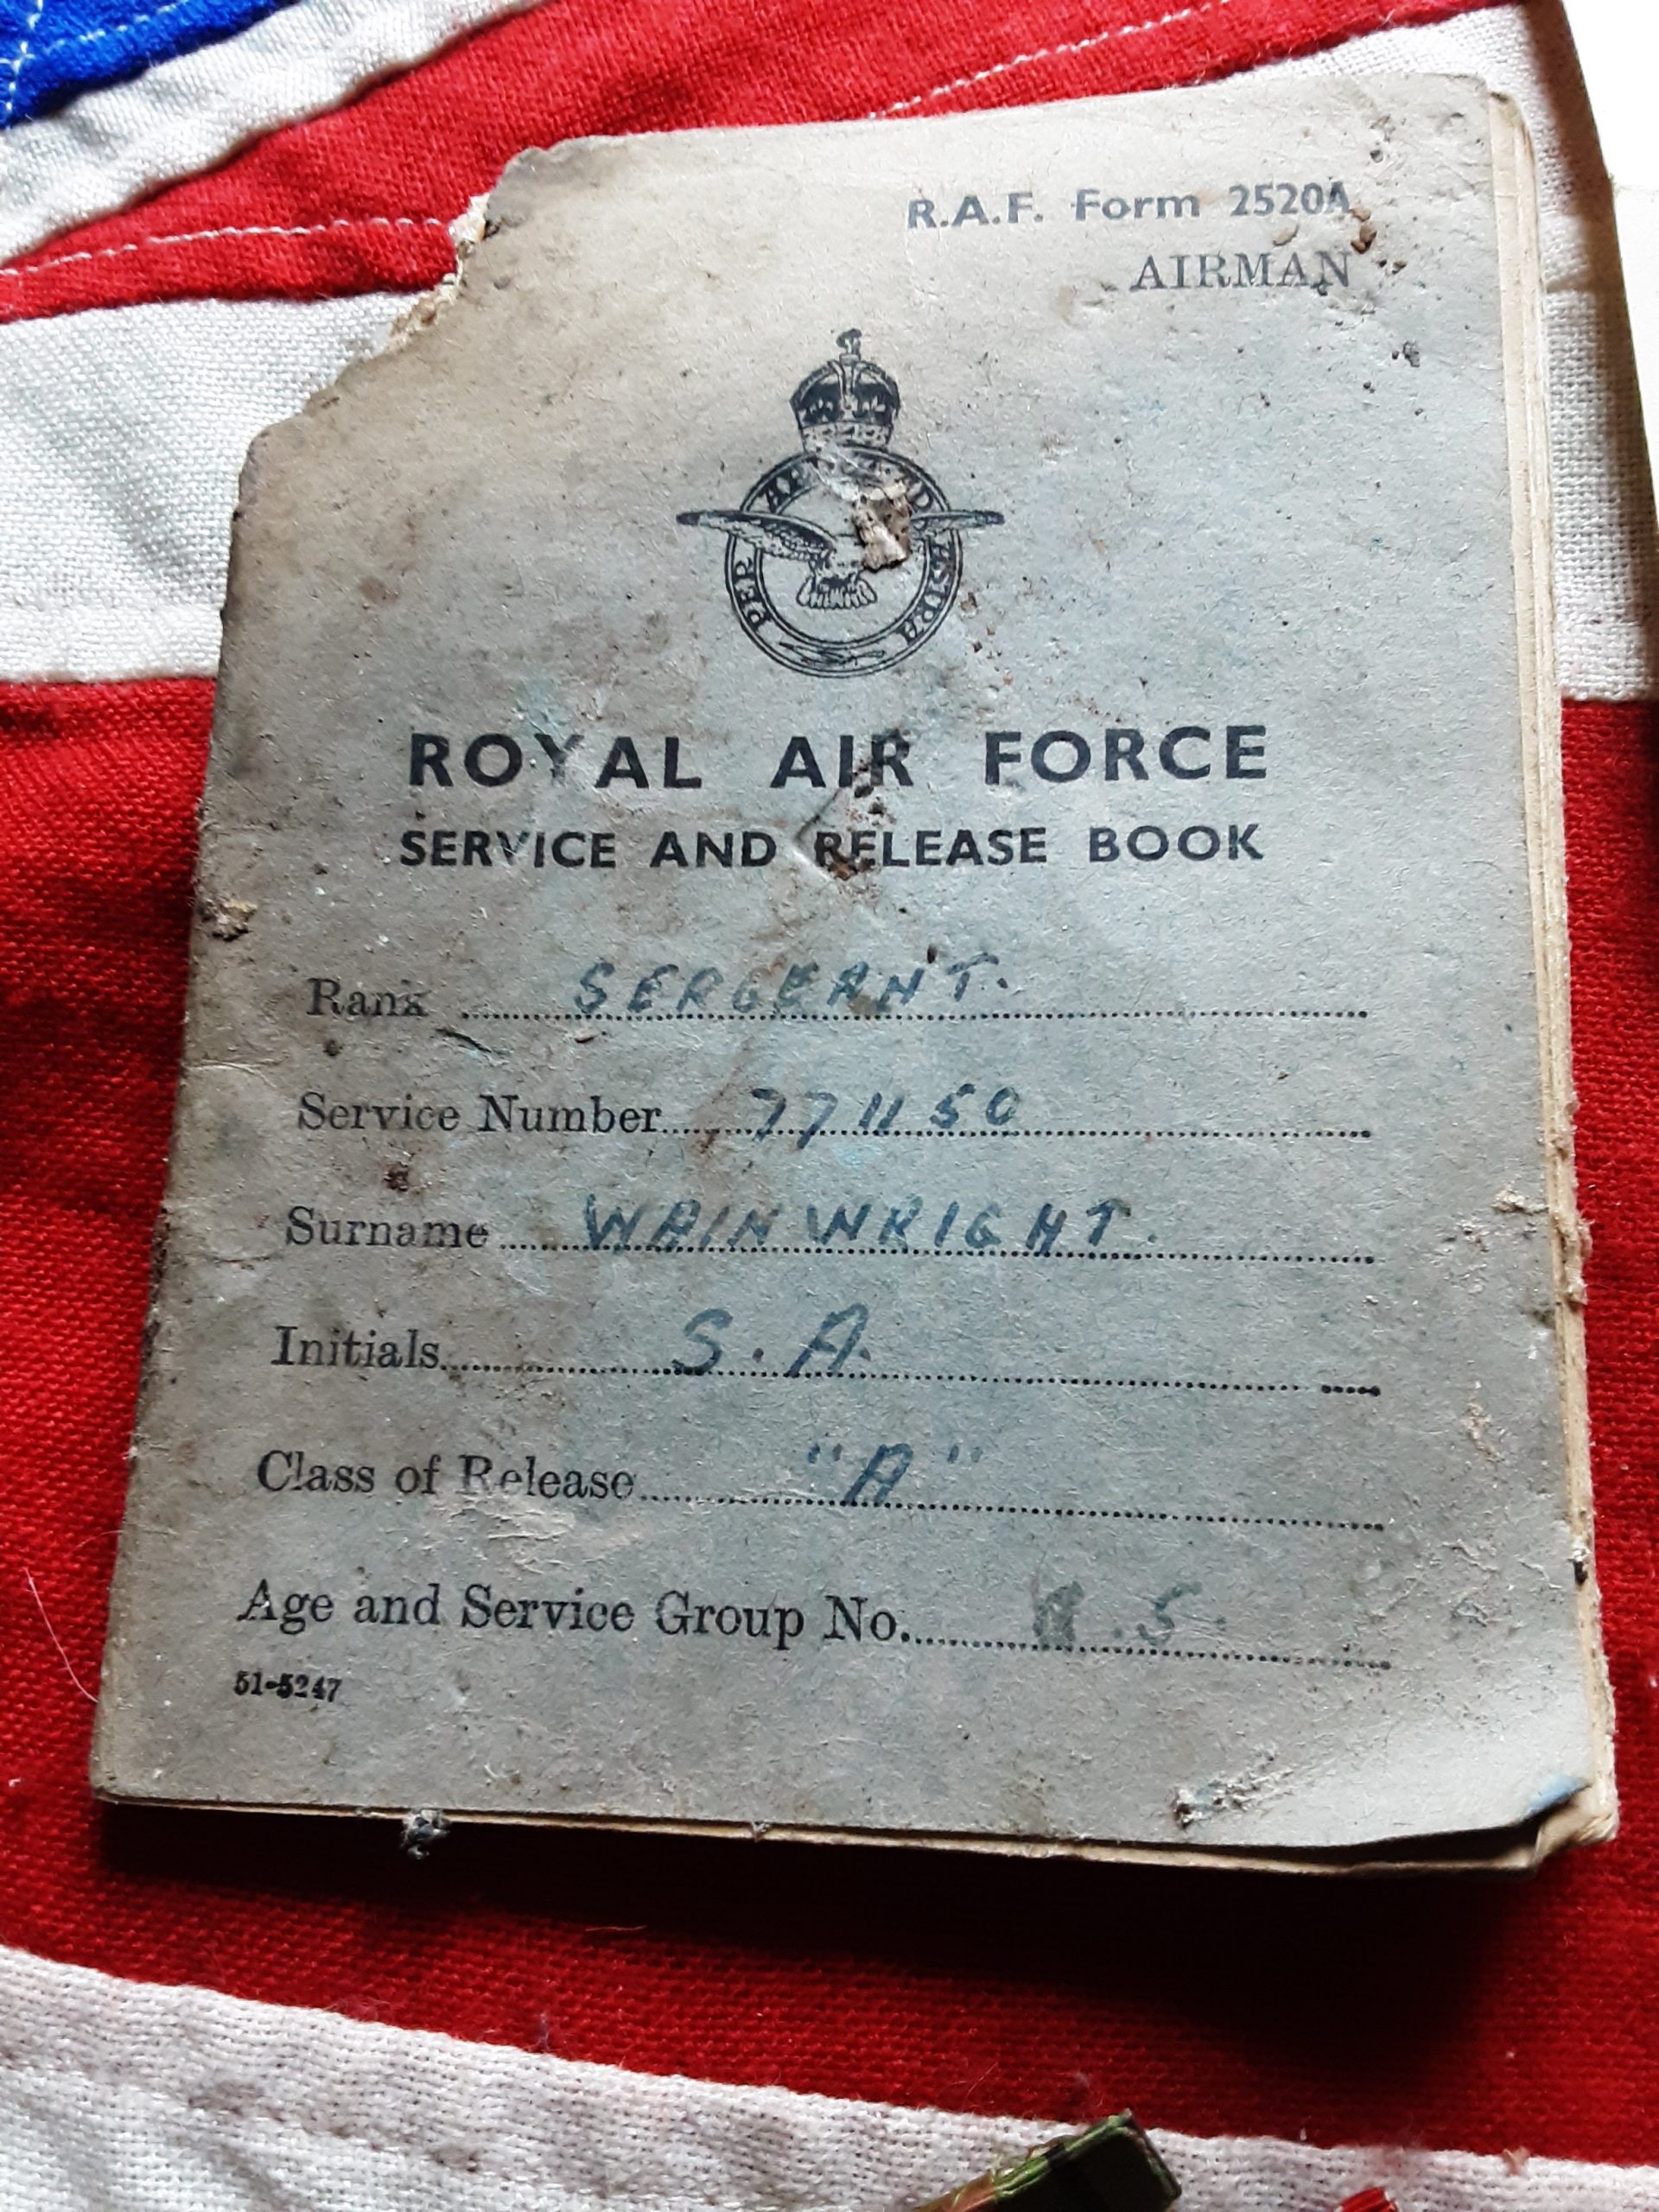 R.A.F. Form 2520A
AIRMAN
PER ARDUA AD ASTRA
ROYAL AIR FORCE
SERVICE AND RELEASE BOOK
Rank SERGEANT.
Service Number 771150
Surname WAINWRIGHT.
Initials S. A.
Class of Release "A"
Age and Service Group No.
51-5247